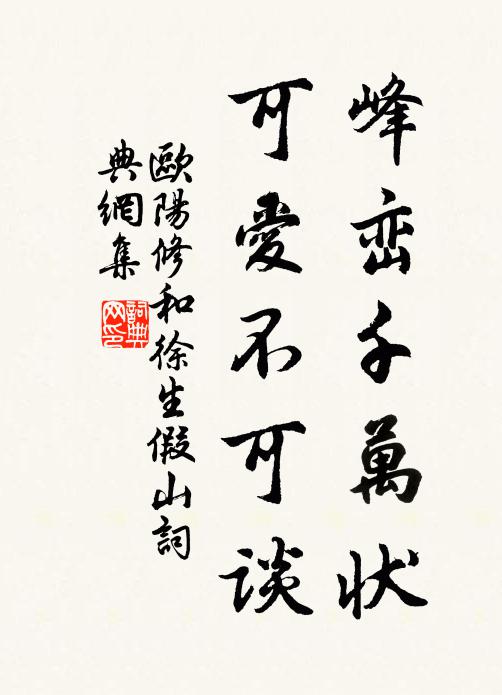 峰峦千萬状
可愛不可谈
歐陽修和徐生假山詞
典網集
詞典
网印